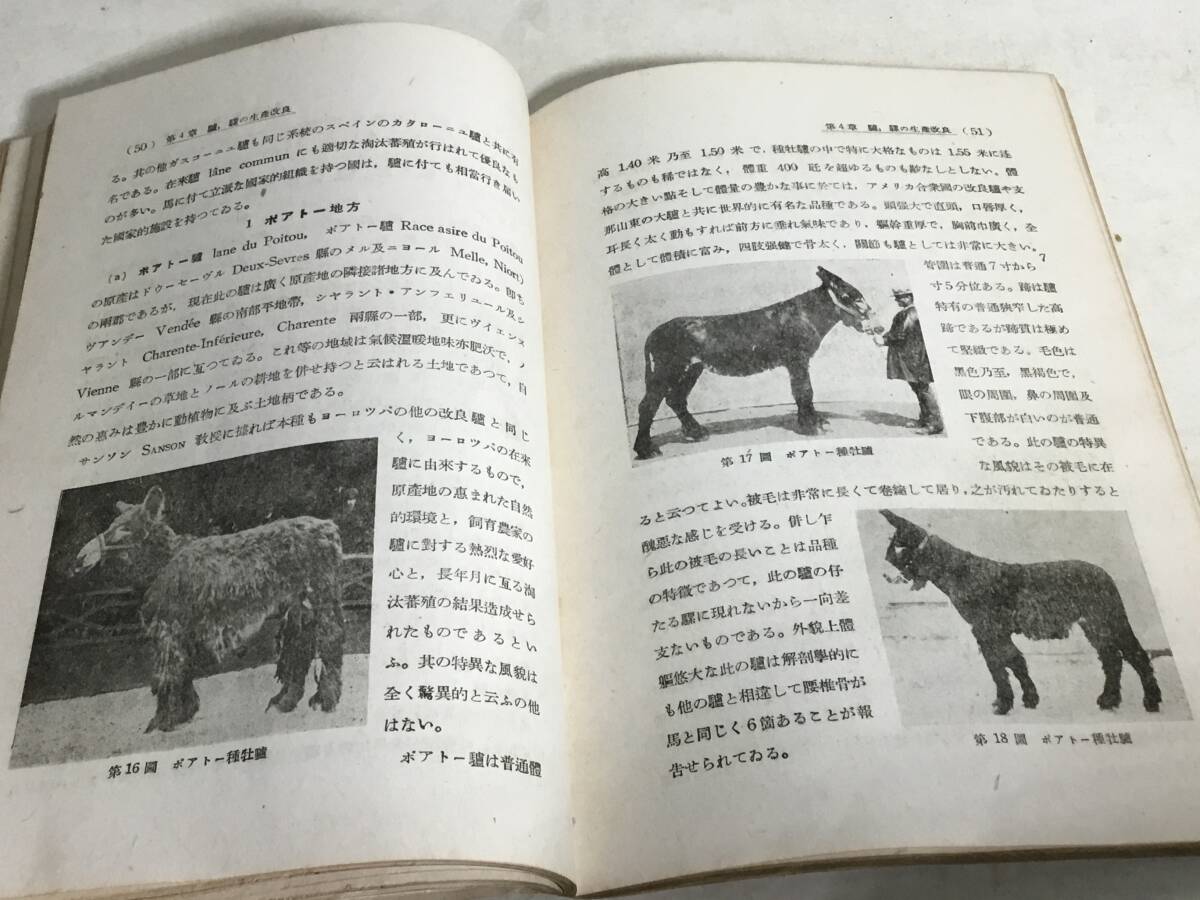 (50) 第4章 驢，騾の生產改良
る。其の他ガスコーニユ驢も同じ系統のスペインのカタローニユ驢と共に有
名である。在來驢 lâne commun にも適切な淘汰蓄殖が行はれて優良なも
のが多い。馬に付て立派な國家的組織を持つ國は，驢に付ても相當行き届い
た國家的施設を持つてゐる。
1 ポアトー地方
(a) ポアトー驢 lane du Poitou, ポアトー驢 Race asire du Poitou
の原產はドウーセーヴル Deux-Sevres 縣のメル及ニヨール Melle, Niort)
の兩郡であるが，現在此の驢は廣く原產地の隣接諸地方に及んでゐる。卽ち
ヴアンデー Vendée 縣の南部平地帶，シヤラント・アンフエリユール及シ
ヤラント Charente-Inférieure, Charente 兩縣の一部，更にヴイエンヌ
Vienne 縣の一部に亙つてゐる。これ等の地域は氣候溫暖地味亦肥沃で，ノ
ルマンデイーの草地とノールの耕地を併せ持つと云はれる土地であつて，自
然の惠みは豊かに動植物に及ぶ土地柄である。
サンソン SANSON 教授に據れば本種もヨーロツパの他の改良驢と同じ
く，ヨーロツパの在來
驢に由來するもので，
原產地の惠まれた自然
的環境と，飼育農家の
驢に對する熱烈な愛好
心と，長年月に亙る淘
汰蓄殖の結果造成せら
れたものであるとい
ふ。其の特異な風貌は
全く驚異的と云ふの他
はない。
ポアトー驢は普通體
第16圖 ポアトー種牡驢
第4章 驢，騾の生產改良 (51)
高 1.40 米 乃至 1.50 米で，種牡驢の中で特に大格なものは 1.55 米に達
するものも稀ではなく，體重 400 瓩を超ゆるものも尠なしとしない。體
格の大きい點そして體量の豊かな事に於ては，アメリカ合衆國の改良驢や支
那山東の大驢と共に世界的に有名な品種である。頭强大で直頭，口唇厚く，
耳長く太く動もすれば前方に垂れ氣味であり，軀幹重厚で，胸前巾廣く，全
體として體積に富み，四肢强健で骨太く，關節も驢としては非常に大きい。
管圍は普通7寸から7
寸5分位ある。蹄は驢
特有の普通狹窄した高
蹄であるが蹄質は極め
て堅緻である。毛色は
黑色乃至，黑褐色で，
眼の周圍，鼻の周圍及
下腹部が白いのが普通
である。此の驢の特異
な風貌はその被毛に在
第17圖 ポアトー種牡驢
ると云つてよい。被毛は非常に長くて卷縮して居り，之が汚れてゐたりすると
醜惡な感じを受ける。併し乍
ら此の被毛の長いことは品種
の特徵であつて，此の驢の仔
たる騾に現れないから一向差
支ないものである。外貌上體
軀悠大な此の驢は解剖學的に
も他の驢と相違して腰椎骨が
馬と同じく6箇あることが報
告せられてゐる。
第18圖 ポアトー種牡驢